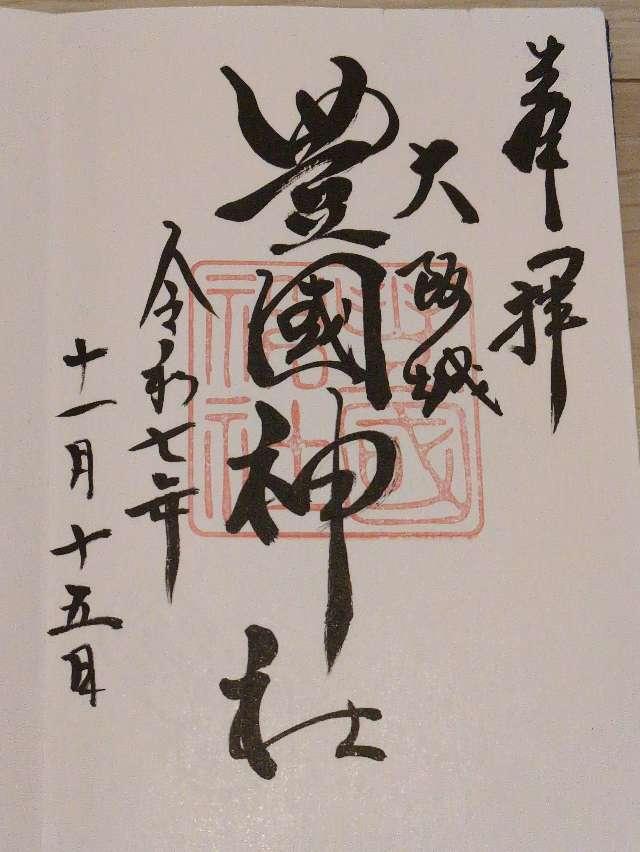 奉拝
大阪城
豊國神社
令和七年
十一月十五日
豊國神社